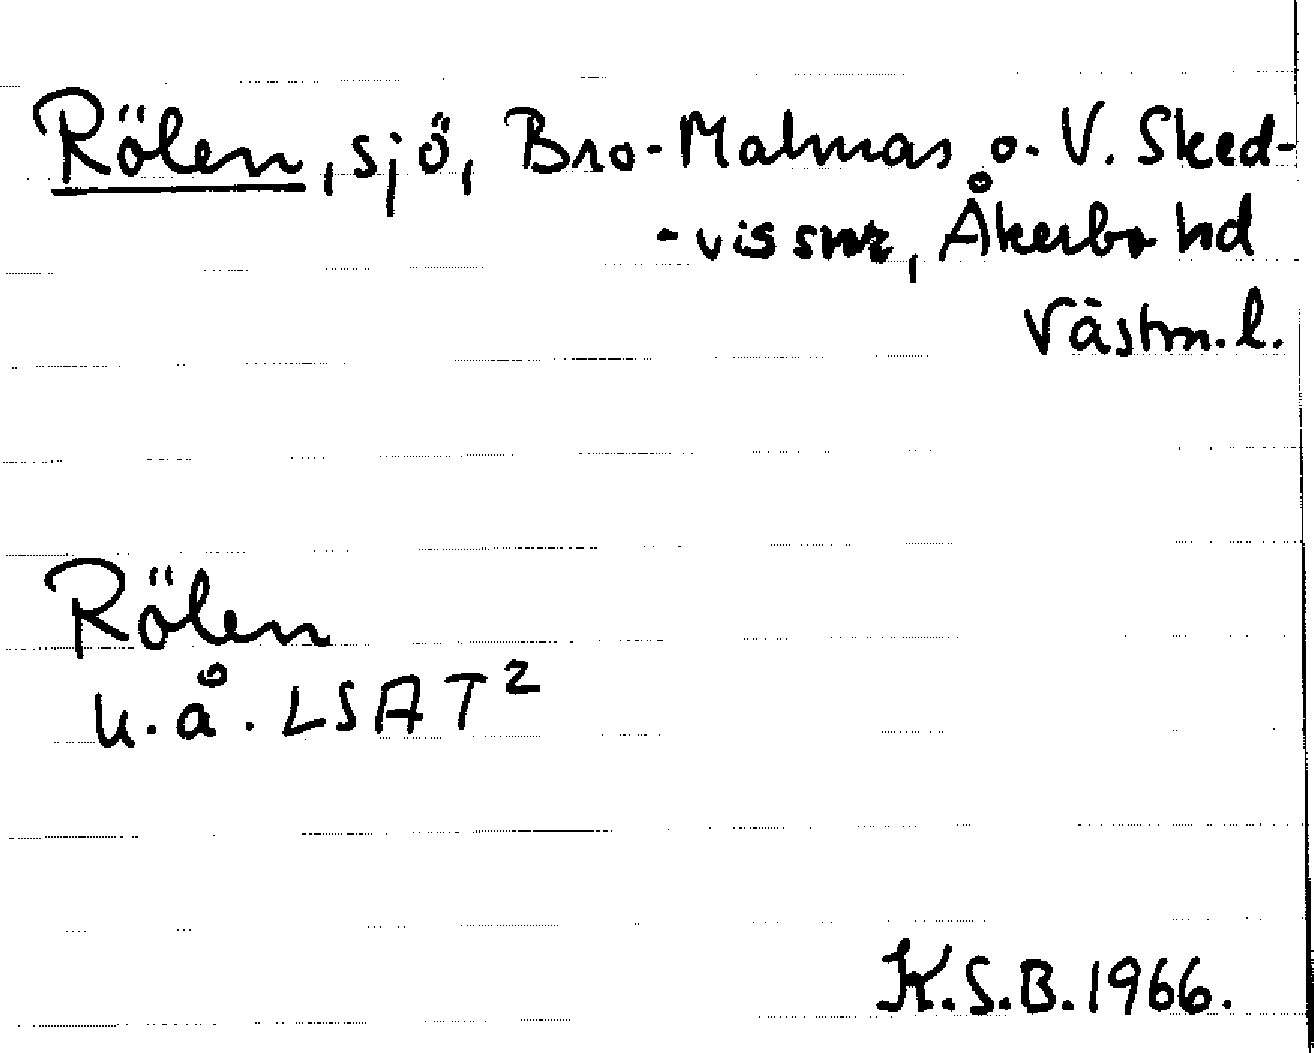 Rölen, sjö, Bro-Malmas o. V. Sked-
-vi snr, Åkerbo hd
Västm. l.
Rölen
u. å. LSAT²
K.S.B. 1966.